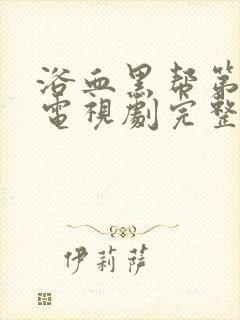 浴血黑帮第
電視劇完整
伊莉萨